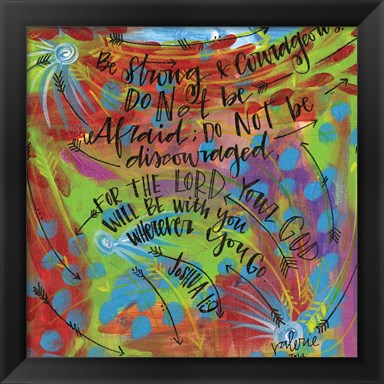 Be Strong & Courageous.
DO Not be
Afraid; DO NOt be
discouraged,
FOR THE LORD YOUR GOD
WILL BE with you
wherever you Go
JOSHUA 1:9
valerie